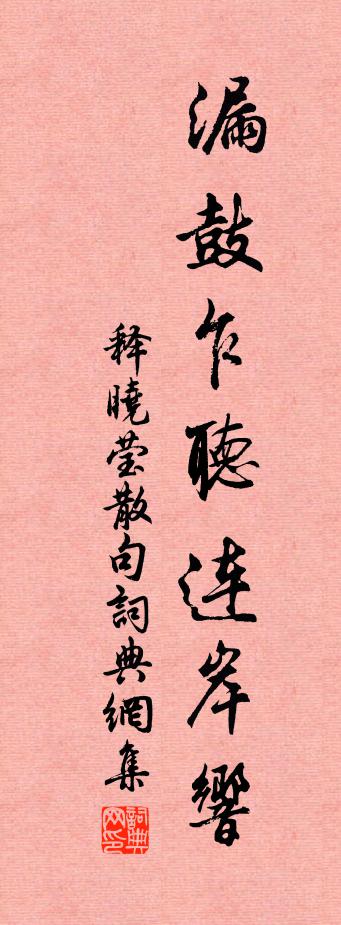 漏鼓乍聽連岸響
释曉莹散句詞典網集
詞典网印